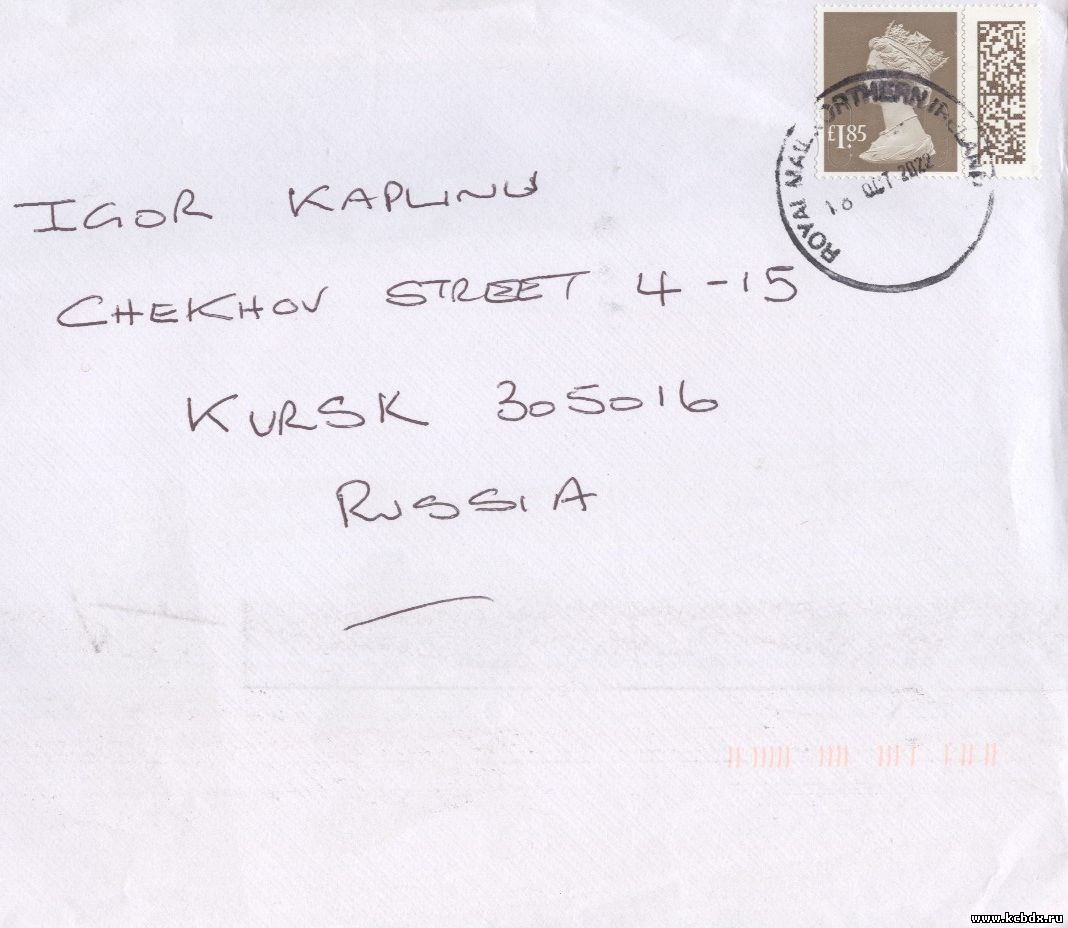 £1.85
ROYAL MAIL NORTHERN IRELAND
OCT 2022
IGOR KAPLINU
CHEKHOV STREET 4-15
KURSK 305016
RUSSIA
www.kcbdx.ru